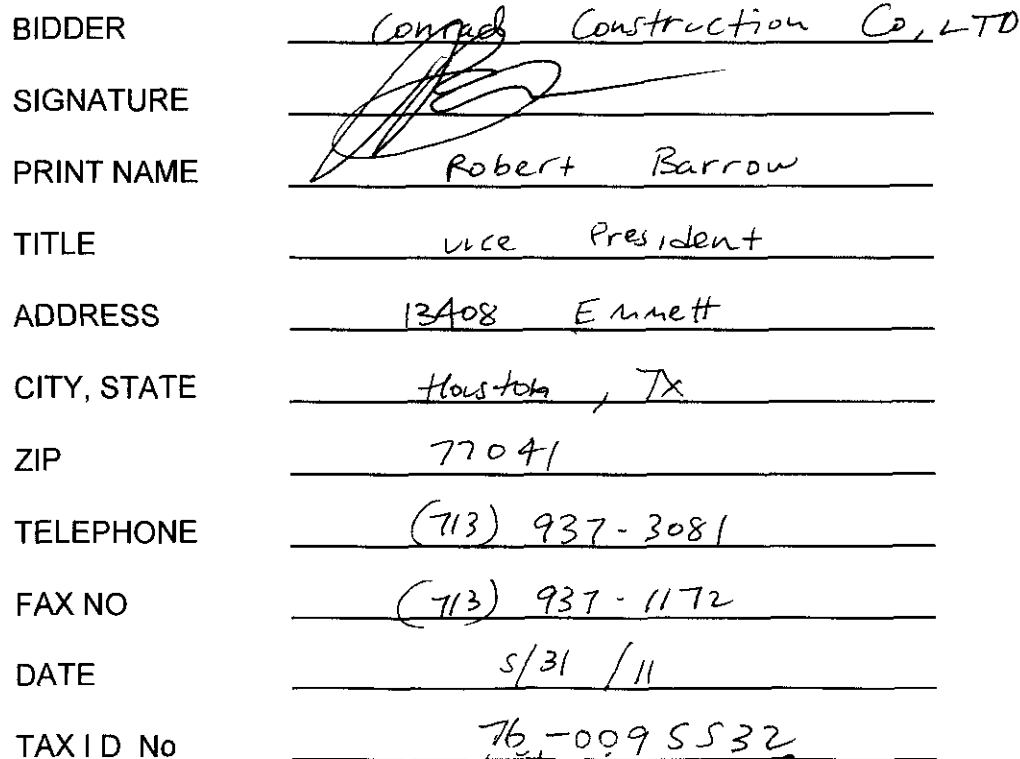 BIDDER Conrad Construction Co, LTD
SIGNATURE
PRINT NAME Robert Barrow
TITLE Vice President
ADDRESS 13408 Emmett
CITY, STATE Houston, TX
ZIP 77041
TELEPHONE (713) 937-3081
FAX NO (713) 937-1172
DATE 5/31/11
TAX I D No 76-0095532